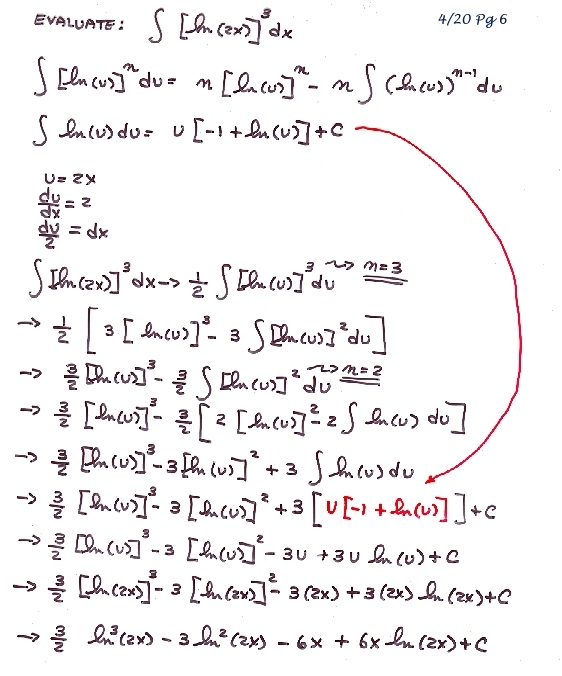 EVALUATE: ∫ [ln(2x)]³ dx
4/20 Pg 6
∫ [ln(u)]ⁿ du = n [ln(u)]ⁿ - n ∫ (ln(u))ⁿ⁻¹ du
∫ ln(u) du = u [-1 + ln(u)] + C
u = 2x
du/dx = 2
du/2 = dx
∫ [ln(2x)]³ dx → 1/2 ∫ [ln(u)]³ du ⇝ n=3
→ 1/2 [ 3 [ln(u)]³ - 3 ∫ [ln(u)]² du ]
→ 3/2 [ln(u)]³ - 3/2 ∫ [ln(u)]² du ⇝ n=2
→ 3/2 [ln(u)]³ - 3/2 [ 2 [ln(u)]² - 2 ∫ ln(u) du ]
→ 3/2 [ln(u)]³ - 3 [ln(u)]² + 3 ∫ ln(u) du
→ 3/2 [ln(u)]³ - 3 [ln(u)]² + 3 [ u [-1 + ln(u)] ] + C
→ 3/2 [ln(u)]³ - 3 [ln(u)]² - 3u + 3u ln(u) + C
→ 3/2 [ln(2x)]³ - 3 [ln(2x)]² - 3(2x) + 3(2x) ln(2x) + C
→ 3/2 ln³(2x) - 3 ln²(2x) - 6x + 6x ln(2x) + C